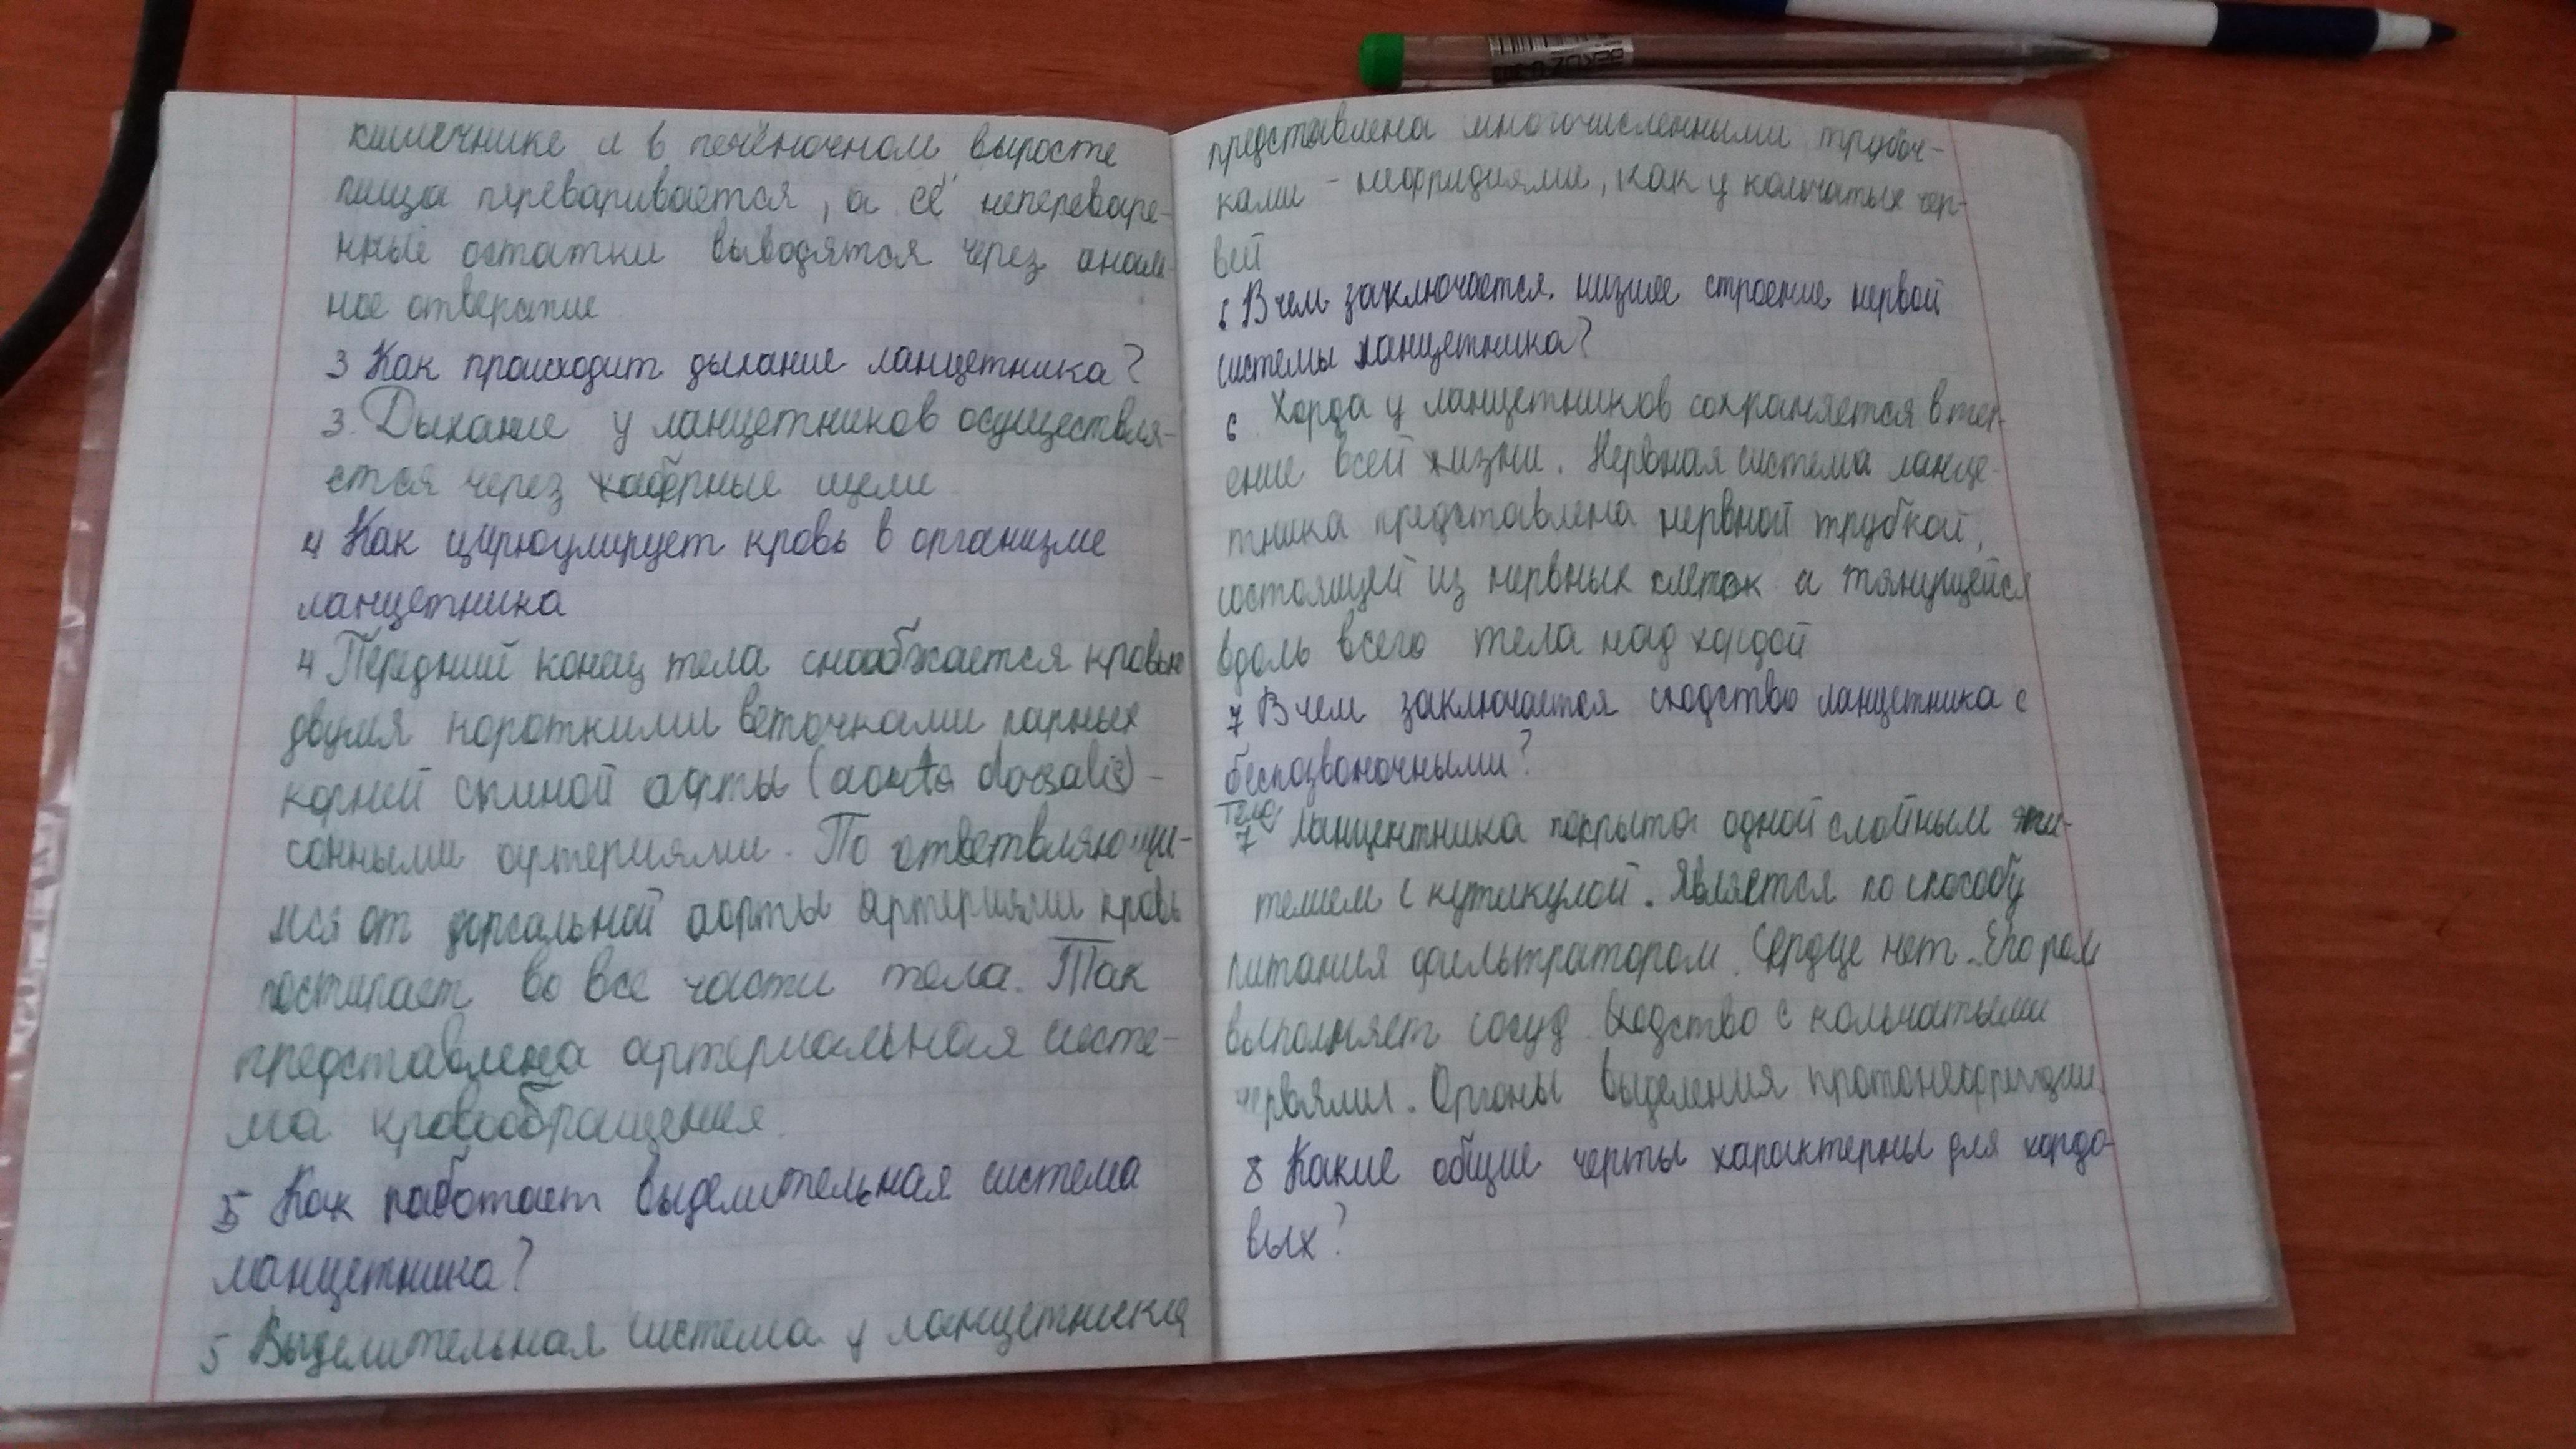 кишечнике и в печёночном выросте
пища переваривается, а её неперeваре-
нные остатки выводятся через аналь-
ное отверстие
3 Как происходит дыхание ланцетника?
3. Дыхание у ланцетников осуществля-
ется через жаберные щели
4 Как циркулирует кровь в организме
ланцетника
4 Передний конец тела снабжается кровью
двумя короткими веточками парных
корней спиной аорты (aorta dorsalis) -
сонными артериями. По ответвляющи-
мся от дорсальной аорты артериями кровь
поступает во все части тела. Так
представлена артериальная систе-
ма кровообращения.
5 Как работает выделительная система
ланцетника?
5 Выделительная система у ланцетника
представлена многочисленными трубоч-
ками - нефридиями, как у кольчатых чер-
вей
6 В чем заключается низшее строение нервой
системы ланцетника?
6 Хорда у ланцетников сохраняется в теч-
ение всей жизни. Нервная система ланце-
тника представлена нервной трубкой,
состоящей из нервных клеток и тянущейся
вдоль всего тела над хордой
7 В чем заключается сходство ланцетника с
беспозвоночными?
Тело
7 Ланцентника покрыто одной слойным эпи-
телием с кутикулой. Является по способу
питания фильтратором. Сердце нет. Его роль
выполняет сосуд. Сходство с кольчатыми
червями. Органы выделения протонефридии.
8 Какие общие черты характерны для хордо-
вых?